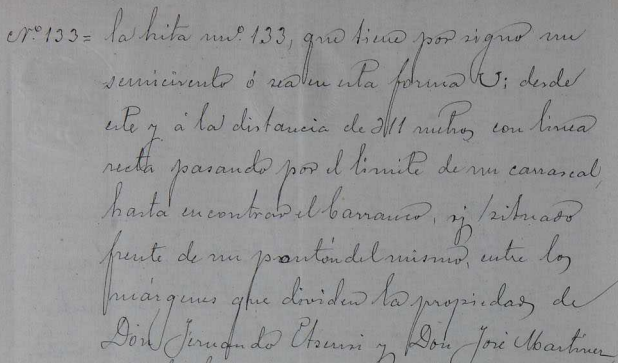 Nº 133= la hita nuº 133, que tiene por signo un
semicirculo ó sea en esta forma U; desde
este y á la distancia de 211 metros con linea
recta pasando por el limite de un carrascal,
hasta encontrar el barranco, y situado
frente de un pontón del mismo, entre los
márgenes que dividen la propiedad de
Don Fernando y Don José Martinez